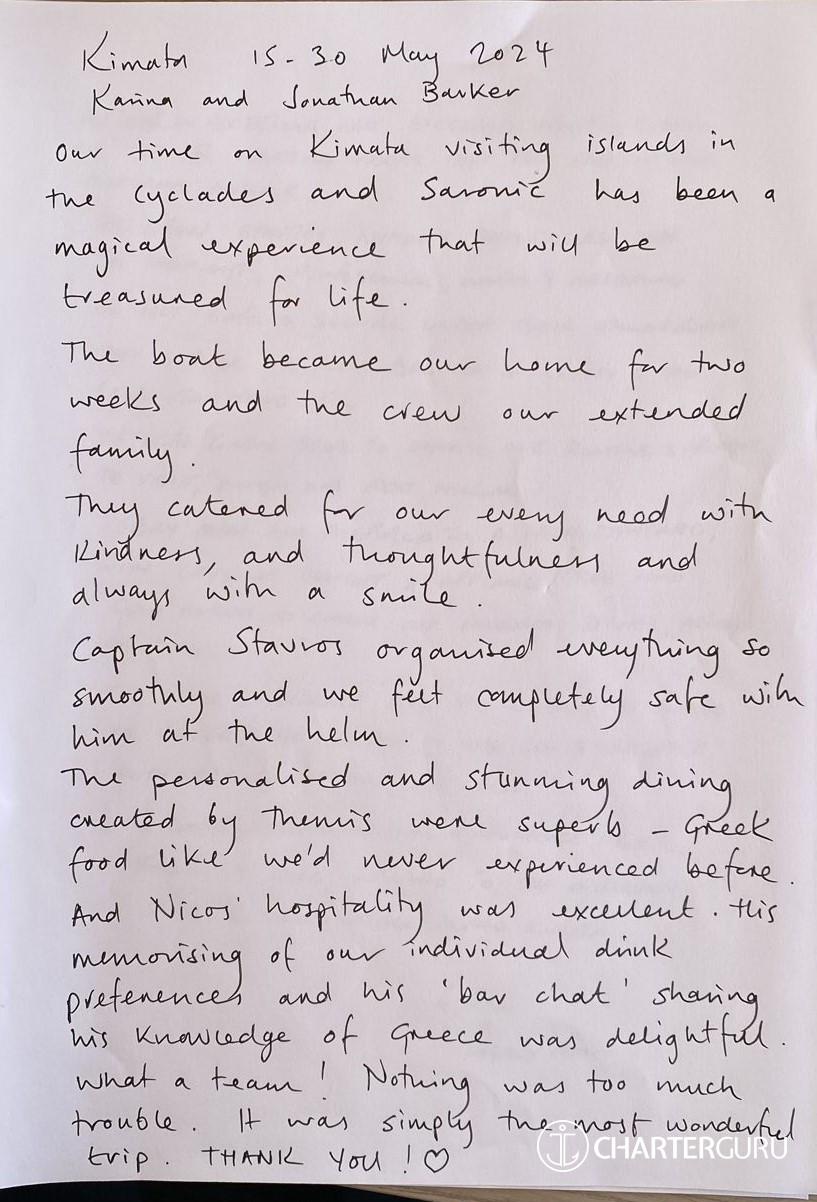 Kimata 15-30 May 2024
Karina and Jonathan Barker
Our time on Kimata visiting islands in
the Cyclades and Saronic has been a
magical experience that will be
treasured for life.
The boat became our home for two
weeks and the crew our extended
family.
They catered for our every need with
kindness, and thoughtfulness and
always with a smile.
Captain Stavros organised everything so
smoothly and we felt completely safe with
him at the helm.
The personalised and stunning dining
created by Themis were superb - Greek
food like we'd never experienced before.
And Nicos' hospitality was excellent. His
memorising of our individual drink
preferences and his 'bar chat' sharing
his knowledge of Greece was delightful.
What a team! Nothing was too much
trouble. It was simply the most wonderful
trip. THANK YOU! ♡
CHARTERGURU